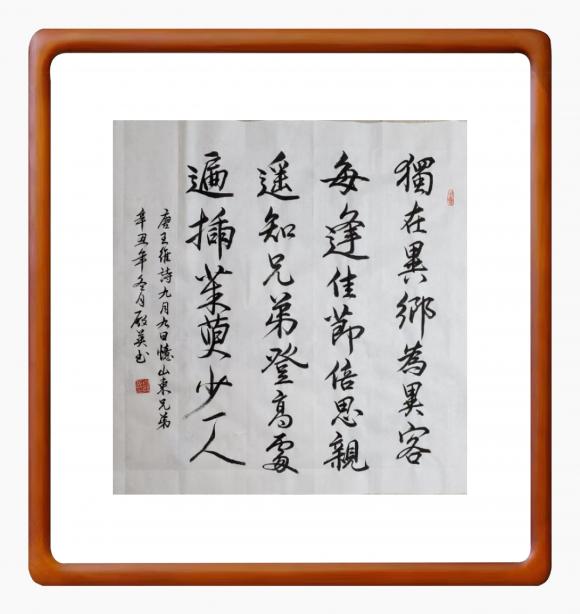 獨在異鄉為異客
每逢佳節倍思親
遥知兄弟登高處
遍插茱萸少一人
唐王維詩九月九日憶山東兄弟
辛丑年冬月啟英书